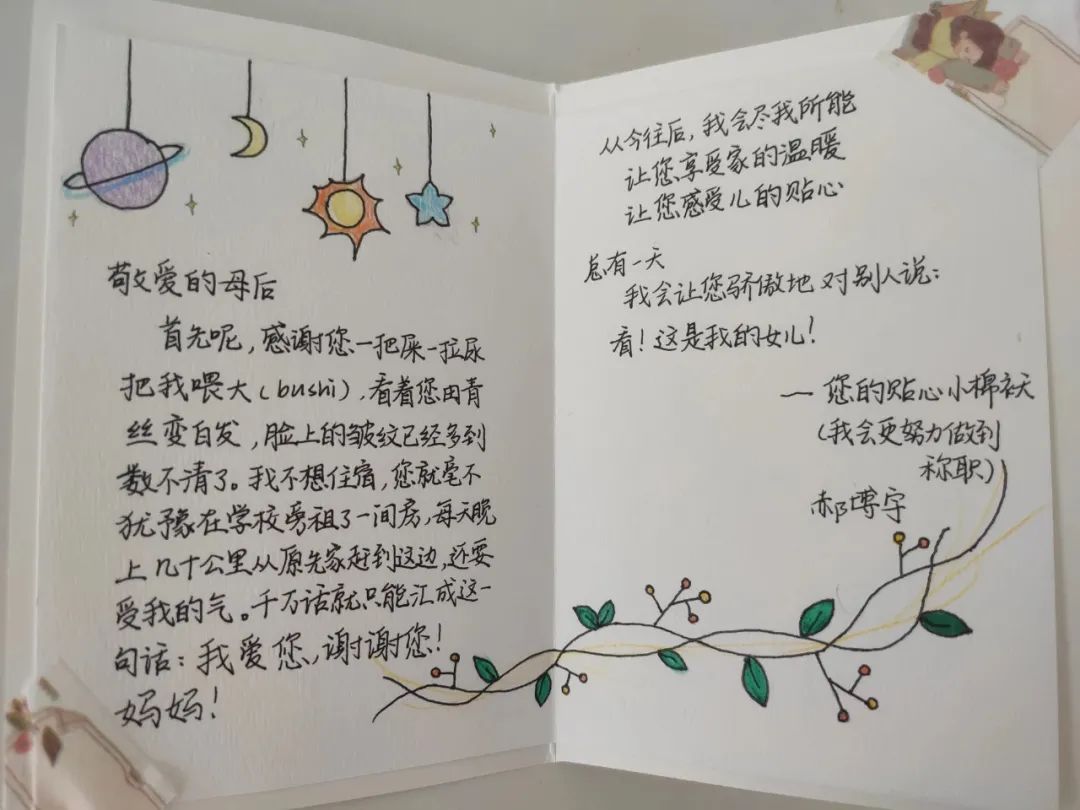 敬爱的母后
首先呢，感谢您一把屎一拉尿
把我喂大（bushi），看着您由青
丝变白发，脸上的皱纹已经多到
数不清了。我不想住宿，您就毫不
犹予象在学校旁租了一间房，每天晚
上几十公里从原先家赶到这边，还要
受我的气。千万话就只能汇成这一
句话：我爱您，谢谢您！
妈妈！
从今往后，我会尽我所能
让您享受家的温暖
让您感受儿的贴心
总有一天
我会让您骄傲地对别人说：
看！这是我的女儿！
——您的贴心小棉袄
（我会更努力做到
称职）
郝博宇